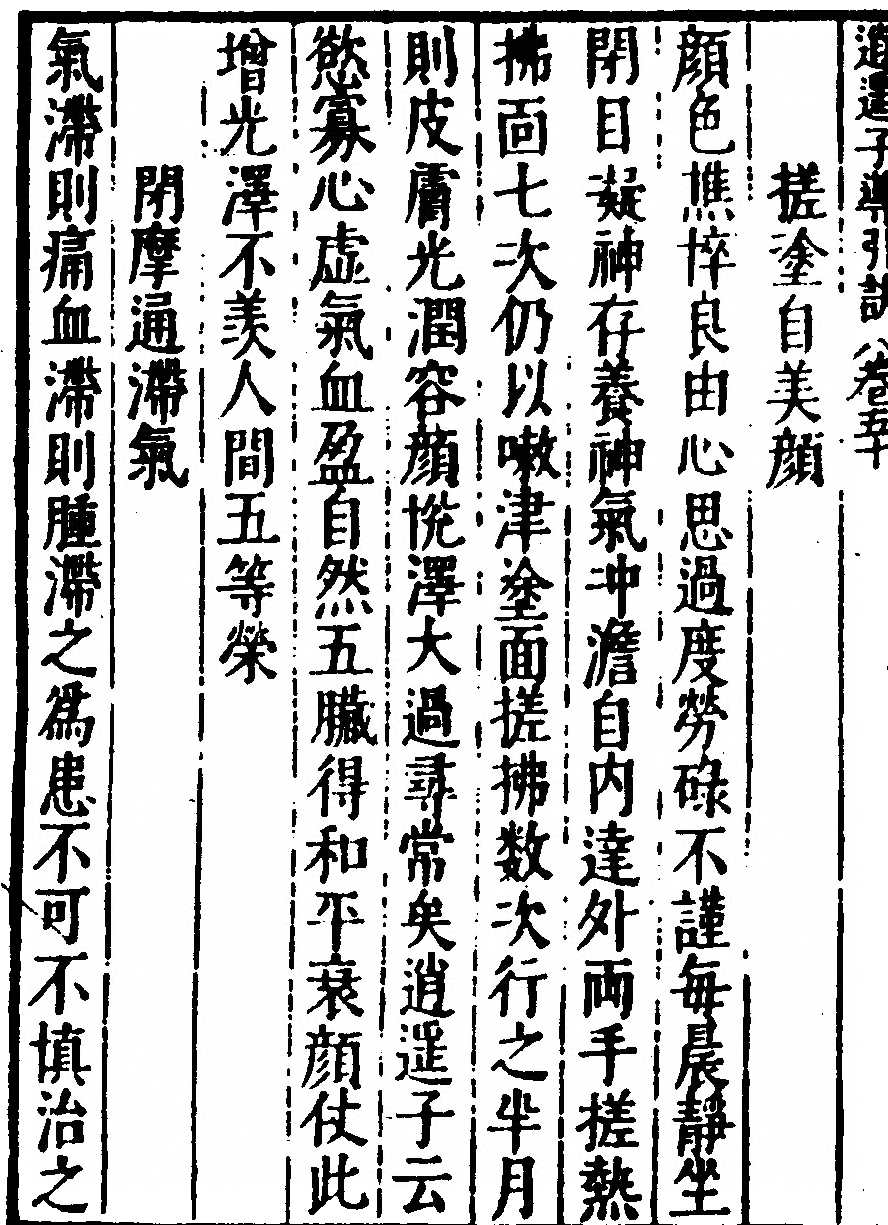 逍遙子導引訣 卷五十
搓塗自美顏
顏色憔悴良由心思過度勞碌不謹每晨靜坐
閉目凝神存養神氣冲澹自内達外兩手搓熱
拂面七次仍以嗽津塗面搓拂数次行之半月
則皮膚光潤容顏悅澤大過尋常矣逍遙子云
慾寡心虛氣血盈自然五臟得和平衰顏仗此
增光澤不羨人間五等榮
閉摩通滯氣
氣滯則痛血滯則腫滯之爲患不可不慎治之